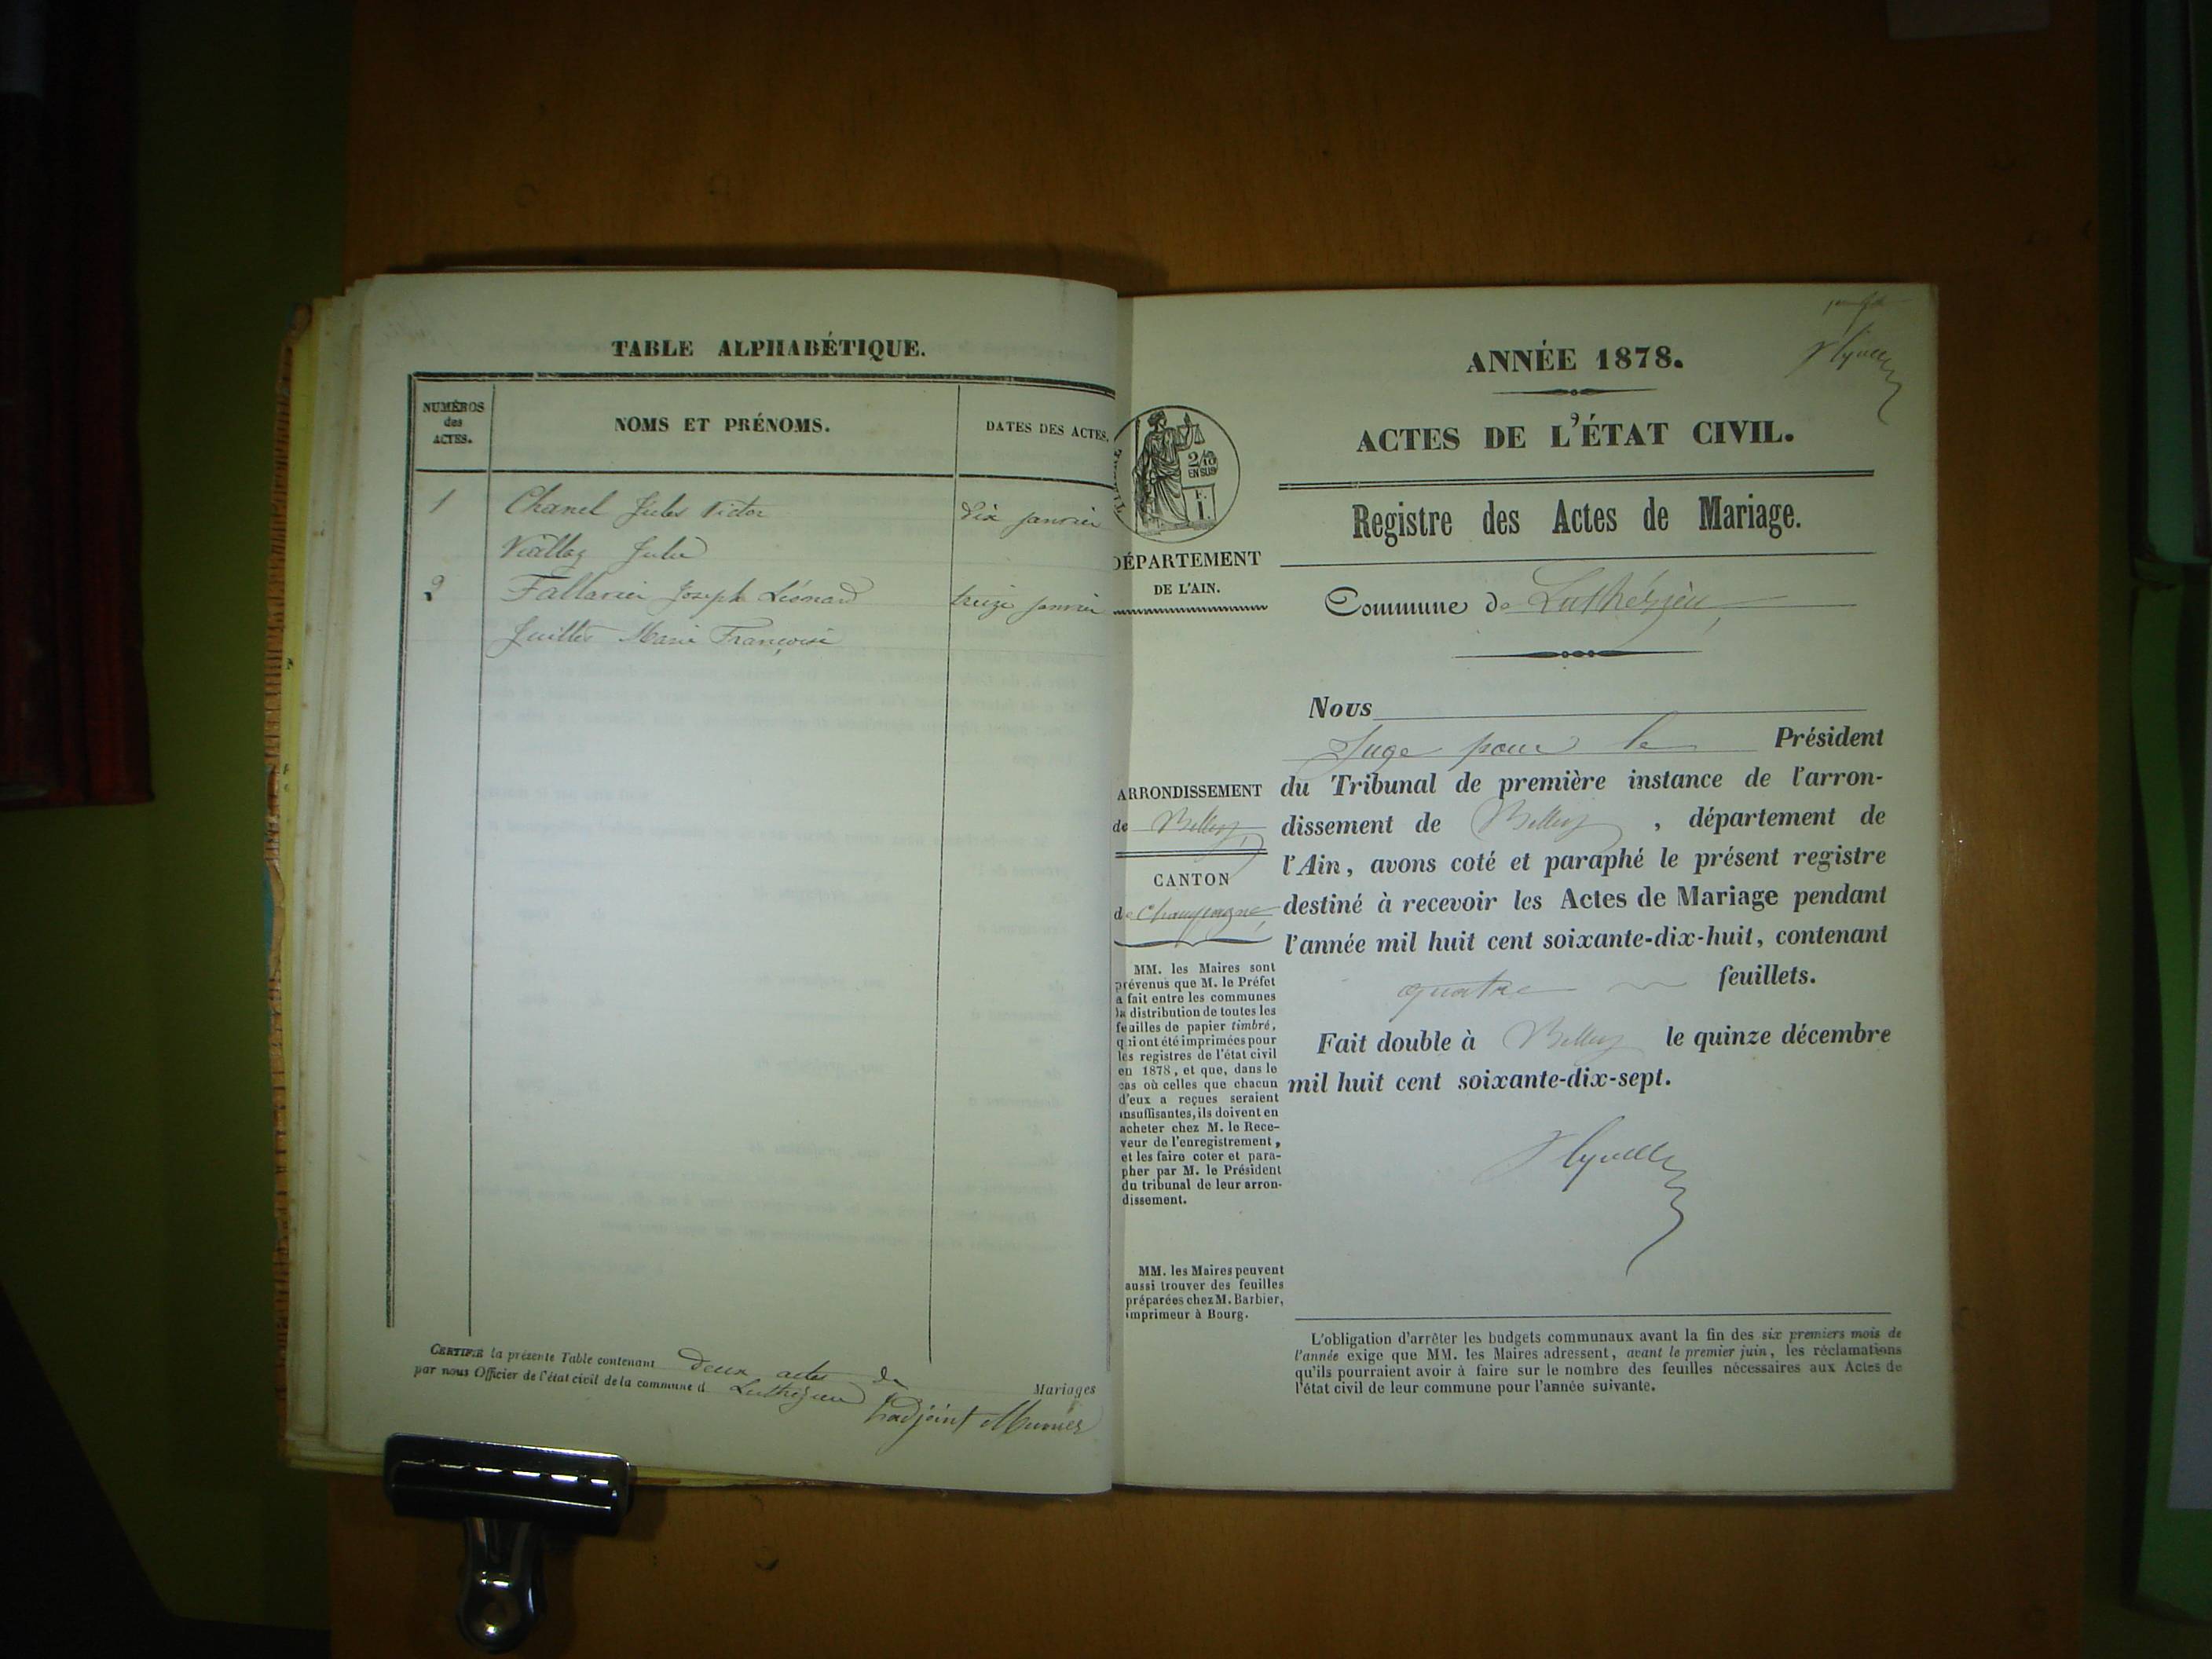 TABLE ALPHABÉTIQUE.
NUMÉROS des ACTES.
NOMS ET PRÉNOMS.
DATES DES ACTES.
1 Chanel Jules Victor dix janvier
Julie
2 Fallavier Joseph Léonard treize janvier
Juillet Marie Françoise
CERTIFIÉ la présente Table contenant deux actes de Mariages
par nous Officier de l'état civil de la commune d Luthézieu
l'adjoint Munier
ANNÉE 1878.
ACTES DE L'ÉTAT CIVIL.
Registre des Actes de Mariage.
2/10
EN SUS
F.
1.
DÉPARTEMENT
DE L'AIN.
Commune de Luthézieu
Nous
Juge pour le Président
du Tribunal de première instance de l'arron-
dissement de Belley, département de
l'Ain, avons coté et paraphé le présent registre
destiné à recevoir les Actes de Mariage pendant
l'année mil huit cent soixante-dix-huit, contenant
quatre feuillets.
Fait double à Belley le quinze décembre
mil huit cent soixante-dix-sept.
ARRONDISSEMENT
de Belley
CANTON
de Champagne
MM. les Maires sont
prévenus que M. le Préfet
a fait entre les communes
la distribution de toutes les
feuilles de papier timbré,
qui ont été imprimées pour
les registres de l'état civil
en 1878, et que, dans le
cas où celles que chacun
d'eux a reçues seraient
insuffisantes, ils doivent en
acheter chez M. le Rece-
veur de l'enregistrement,
et les faire coter et para-
pher par M. le Président
du tribunal de leur arron-
dissement.
MM. les Maires peuvent
aussi trouver des feuilles
préparées chez M. Barbier,
imprimeur à Bourg.
L'obligation d'arrêter les budgets communaux avant la fin des six premiers mois de
l'année exige que MM. les Maires adressent, avant le premier juin, les réclamations
qu'ils pourraient avoir à faire sur le nombre des feuilles nécessaires aux Actes de
l'état civil de leur commune pour l'année suivante.